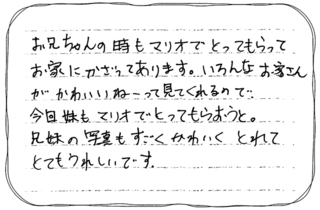 お兄ちゃんの時もマリオでとってもらって
お家にかざってあります。いろんなお客さん
がかわいいねーって見てくれるので
今回妹もマリオでとってもらおうと。
兄妹の写真もすごくかわいくとれて
とてもうれしいです。